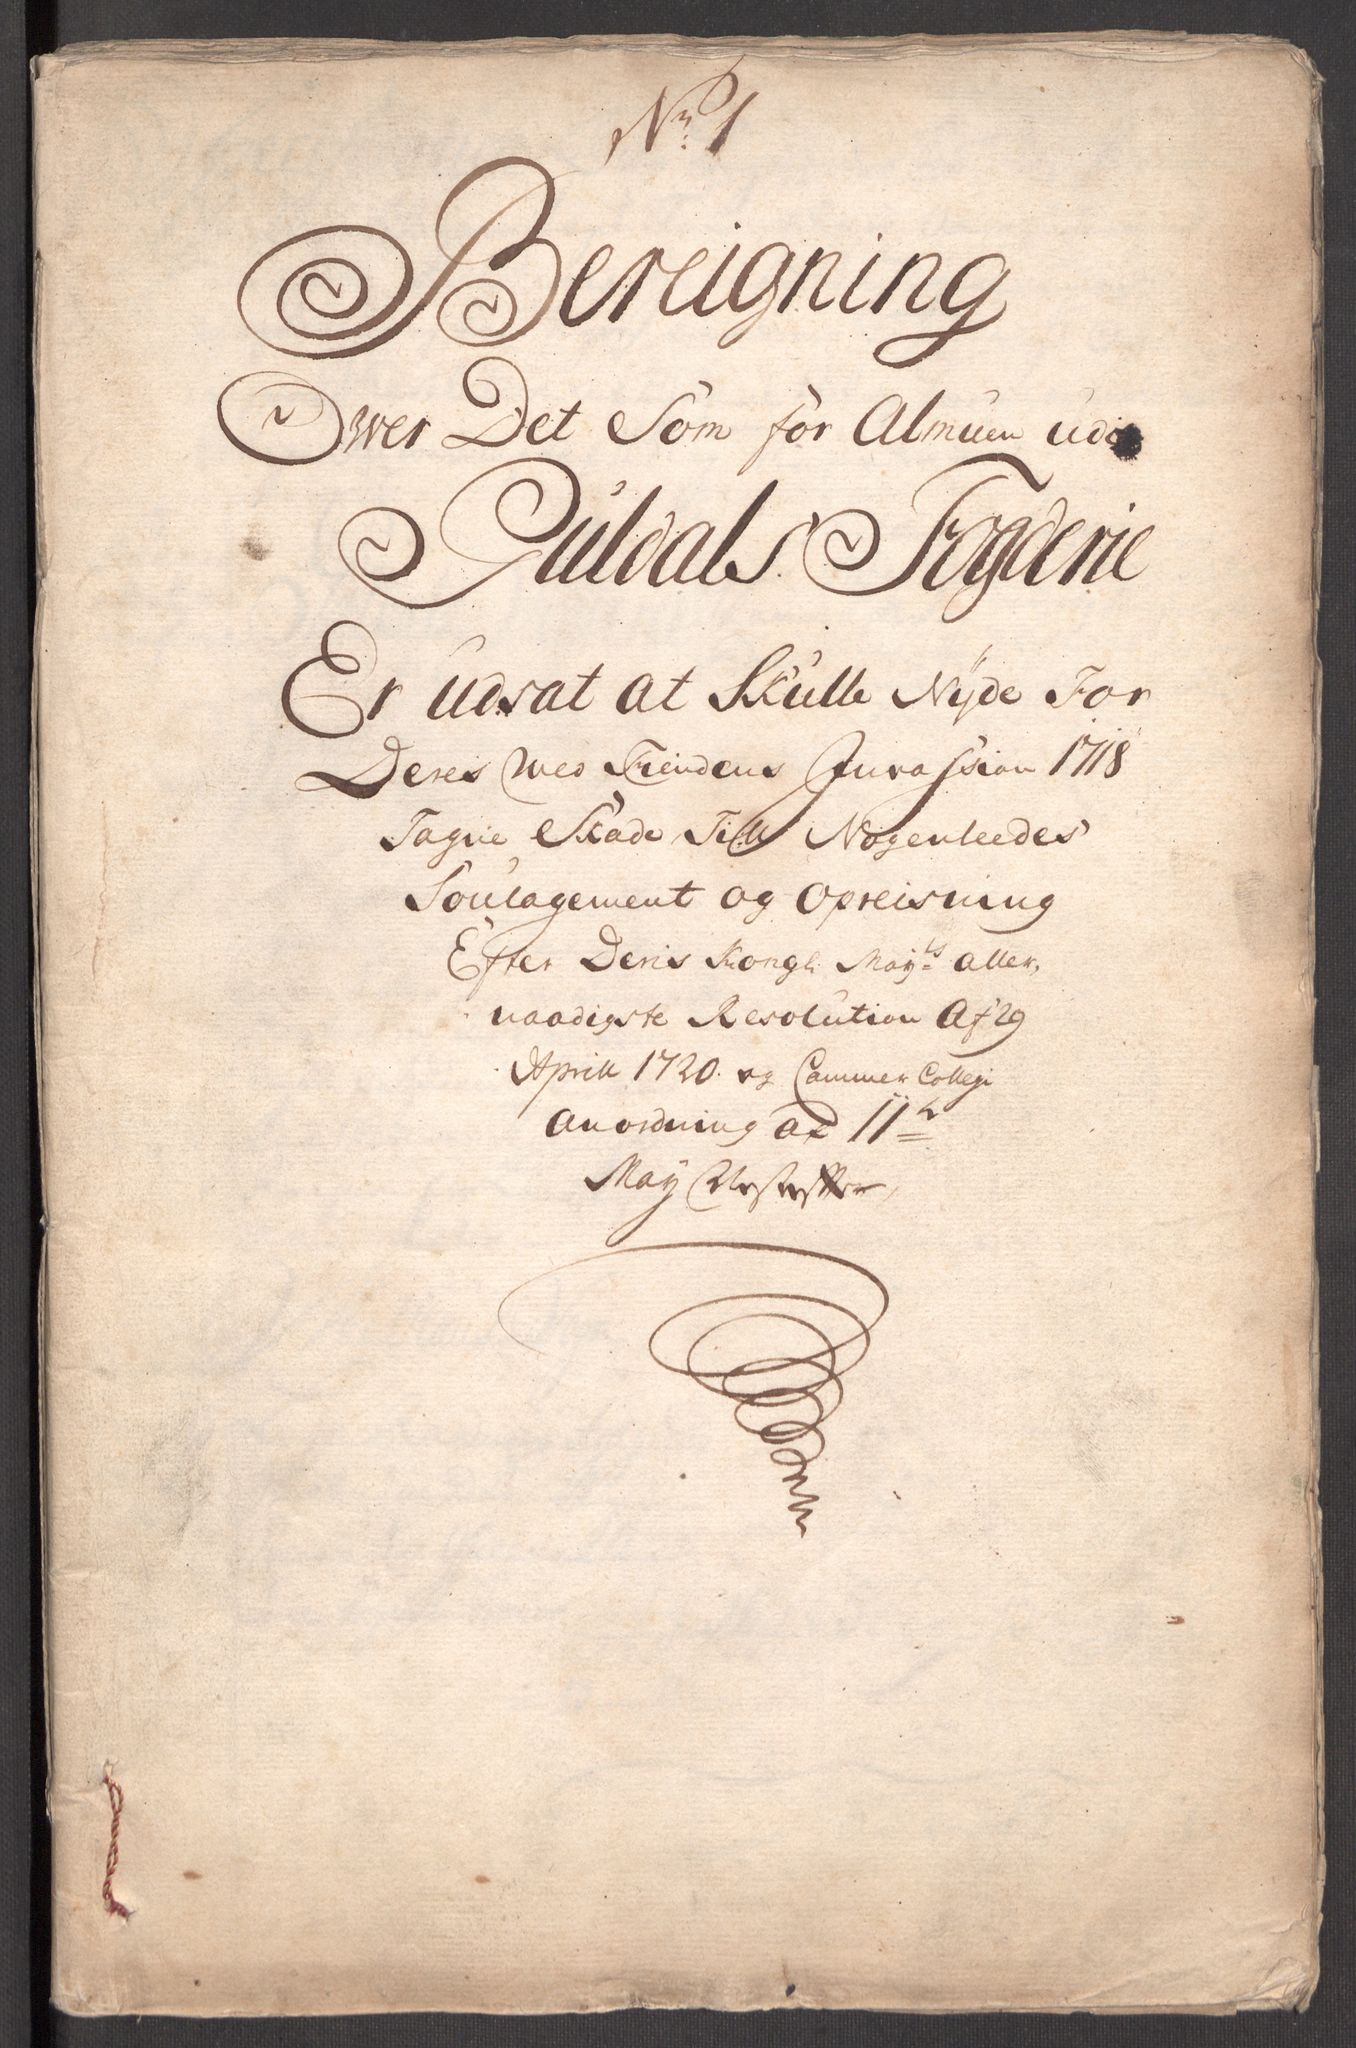 No 1
Bereigning
Over Det Som for Almuen udi
Guldals Fogderie
Er udsat at Skulle Nyde For
Deres wed Fiendens Invassion 1718
Tagne Skade Till Nogenleedes
Soulagement og Opreisning
Efter Deris Kongl: May:ts aller,
naadigste Resolution Af 29
Aprill 1720. og Cammer Collegi
Anordning af 11te
May